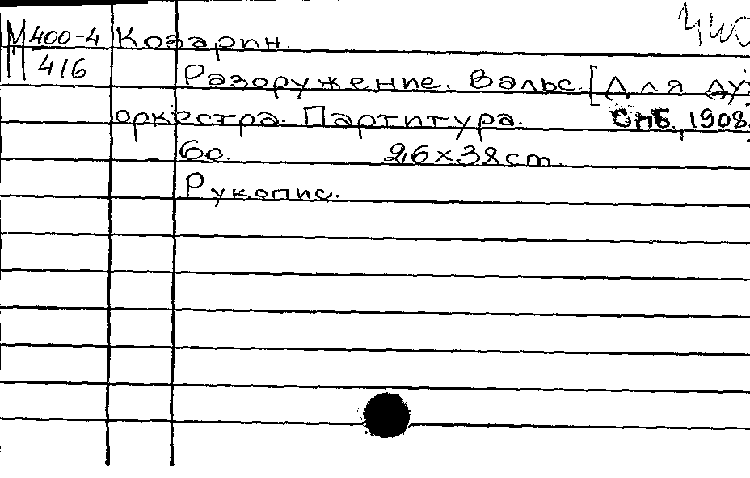 М 400-4 Козарин.
416
Разоружение. Вальс. [Для ду
оркестра. Партитура. СПБ, 1908.
6с. 26×38cm.
Рукопис.